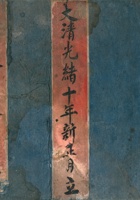 大清光緒十年新正月立